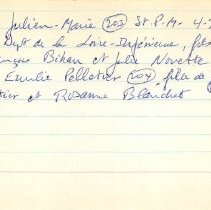 Julien-Marie (203) St. P. M. 4-
Dept de la Loire-Inférieure, fils
Bihan et Julie Novette
Emilie Pelletier (204), fille de
et Rozanne Blanchet